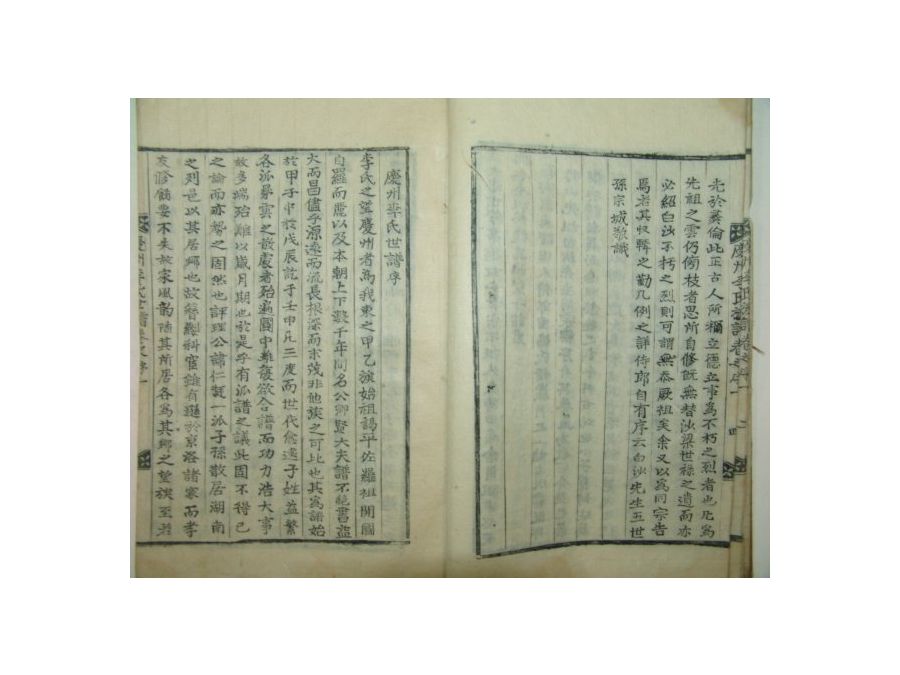 先於彛倫此正古人所稱立德立事爲不朽之烈者也凡爲
先祖之雲仍傍枝者思所自修旣無替沙梁世祿之遺而亦
必紹白沙不朽之烈則可謂無忝厥祖矣余又以爲同宗告
焉若其收輯之勤凡例之詳侍郎自有序云白沙先生五世
孫宗城敬識
慶州李氏世譜序
李氏之望慶州者爲我東之甲乙族始祖謁平佐羅祖開國
自羅而麗以及本朝上下數千年間名公卿賢大夫譜不能書盜
大而昌儘乎源遠而流長根深而末茂非他族之可比也其爲譜始
於甲子中於戊辰訖于壬申凡三度而世代愈遠子姓益繁
各派鼻雲之散處者殆遍國中雖復欲合譜而功力浩大事
故多端殆難以歲月期也於是乎有派譜之議此固不得已
之論而亦勢之固然也評理公諱仁 一派子孫散居湖南
之列邑以其居鄕也故簪組科宦雖有遜於京洛諸家而孝
友修 要不失故家風韵隨其所居各爲其鄕之望族至若